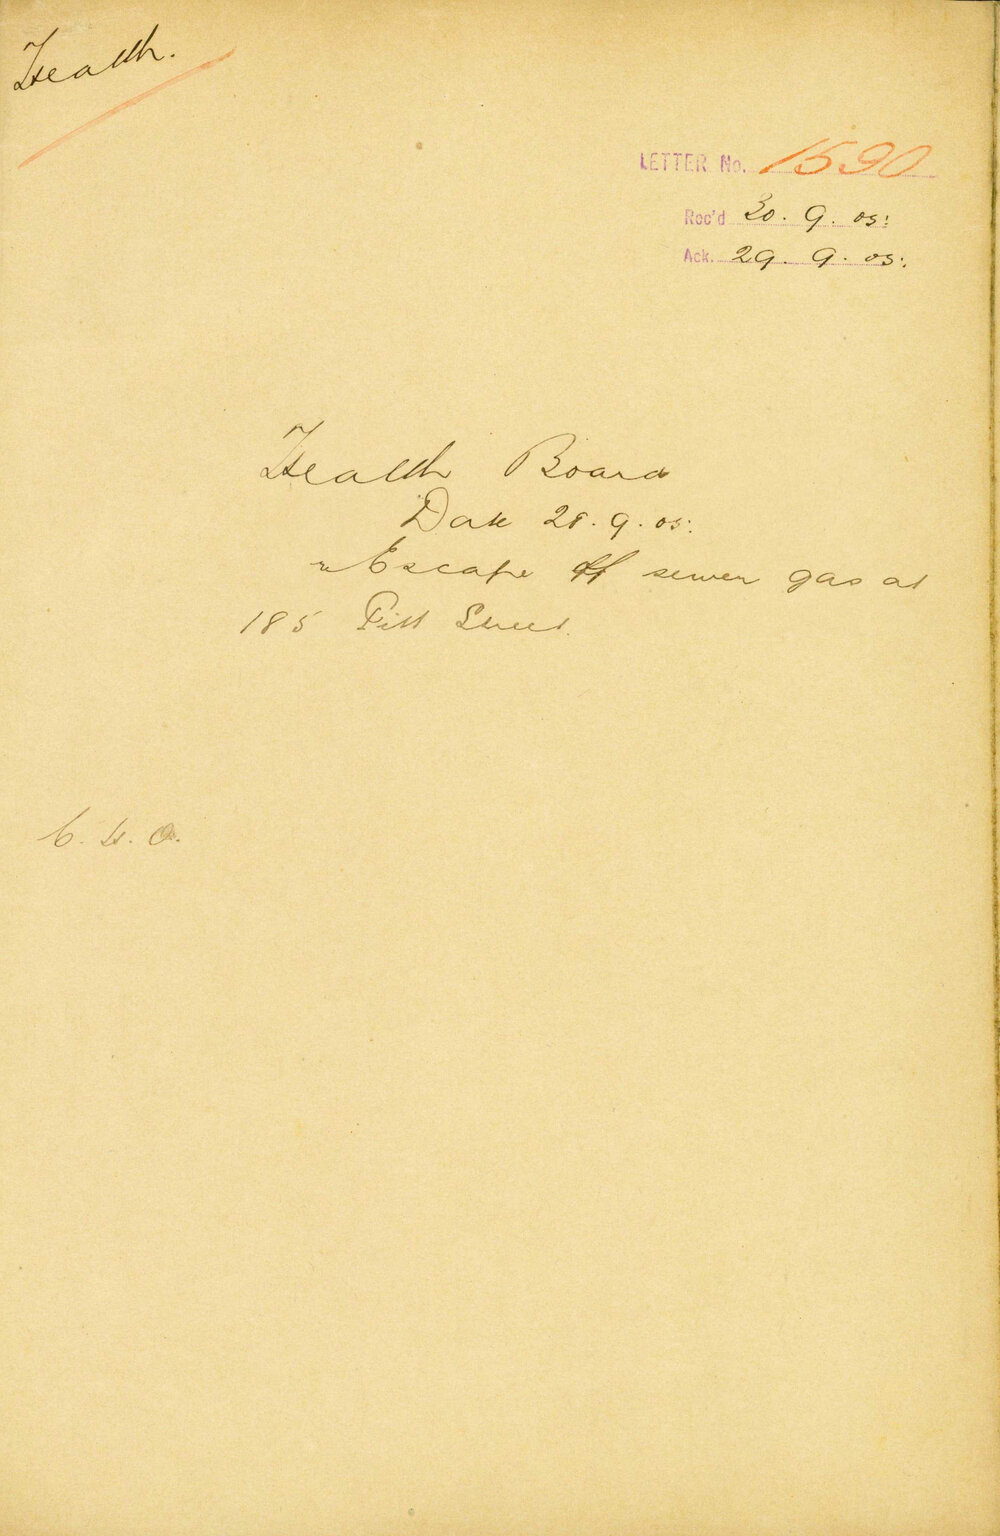 Health.
LETTER No. 1590
Rec'd 30. 9. 05:
Ack. 29. 9. 05:
Health Board
Date 28. 9. 05:
re Escape of sewer gas at
185 Pitt Street.
C. H. O.